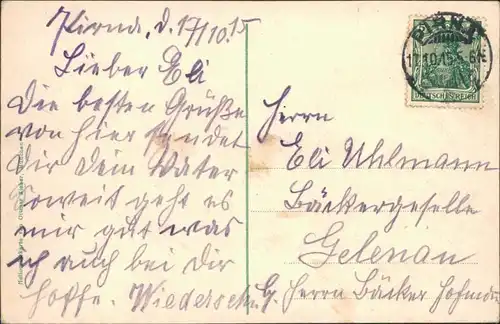 Pirna, d. 17/10.15
Lieber Eli
Die besten Grüße
von hier sendet
Dir Dein Vater
Soweit geht es
mir gut was
ich auch bei Dir
hoffe. Wiedersehn
PIRNA
17.10.15.5-6N.
DEUTSCHES REICH
Herrn
Eli Uhlmann
Bäckergeselle
Gelenau
b/ Herrn Bäcker Hofmann